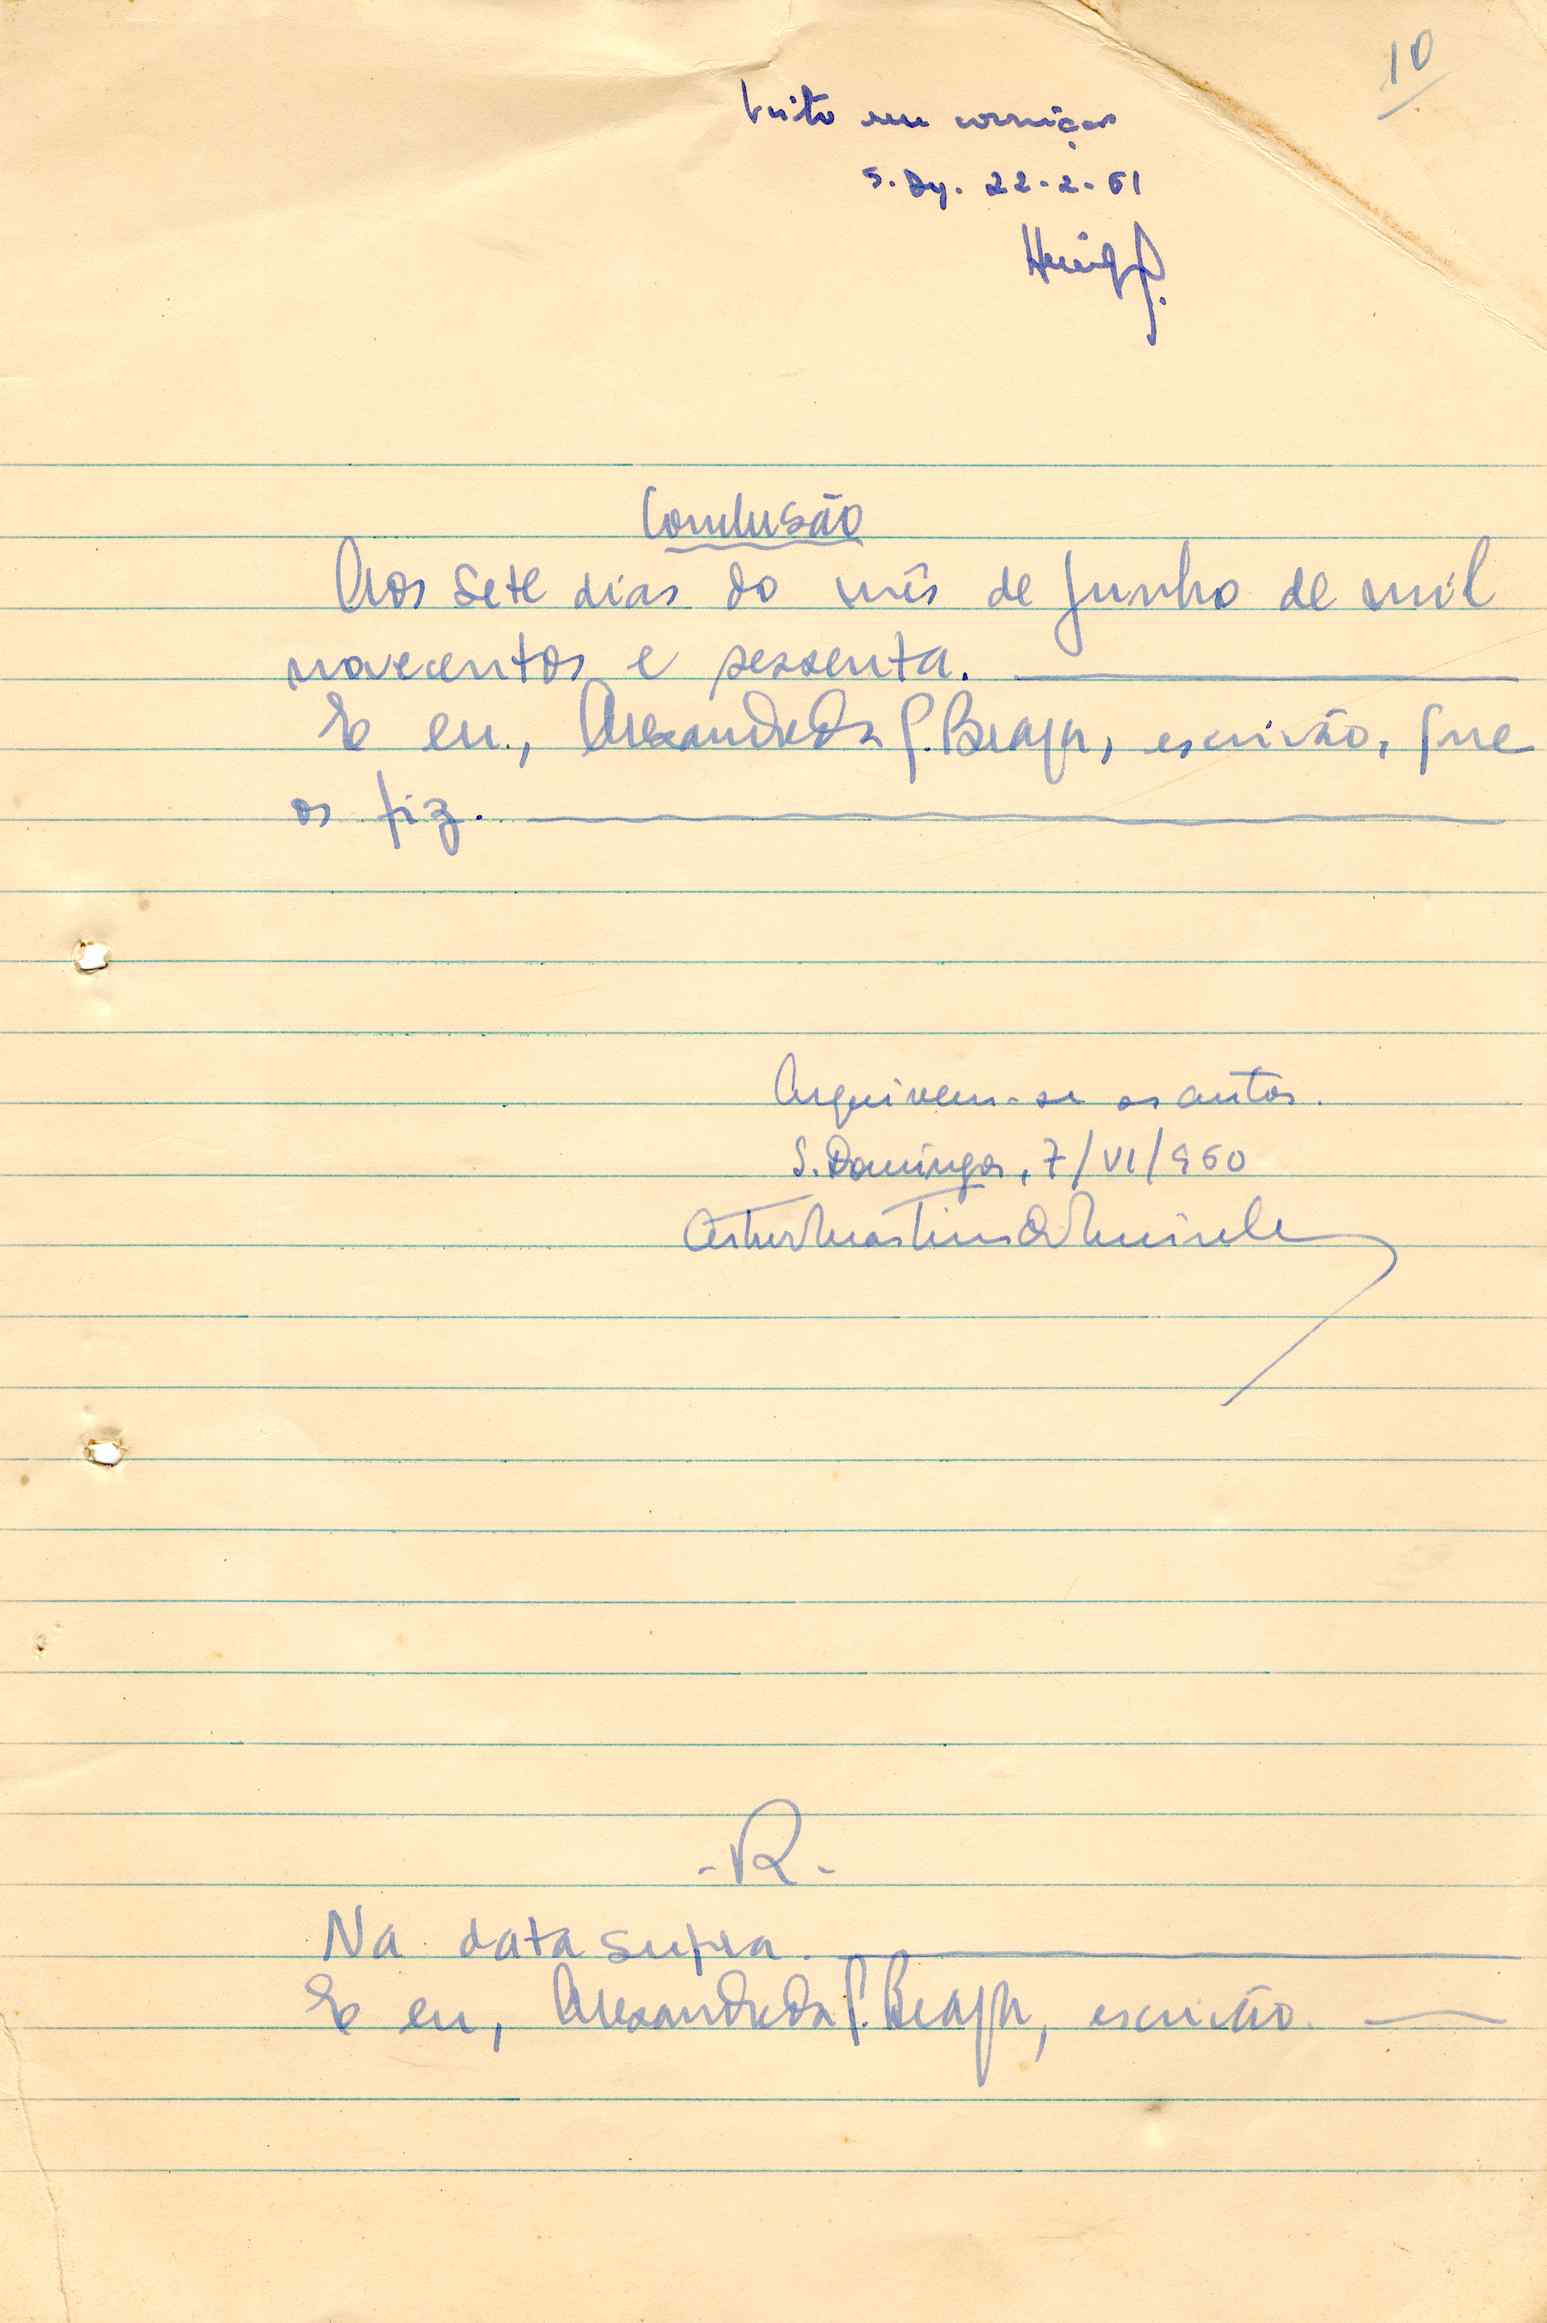 10
Visto em correição
S. Dgs. 22-2-61
Conclusão
Aos sete dias do mês de junho de mil
novecentos e sessenta.
E eu, Alexandre da S. Braga, escrivão, que
os fiz.
Arquivem-se os autos.
S. Domingos, 7/VI/960
-R-
Na data supra.
E eu, Alexandre da S. Braga, escrivão.